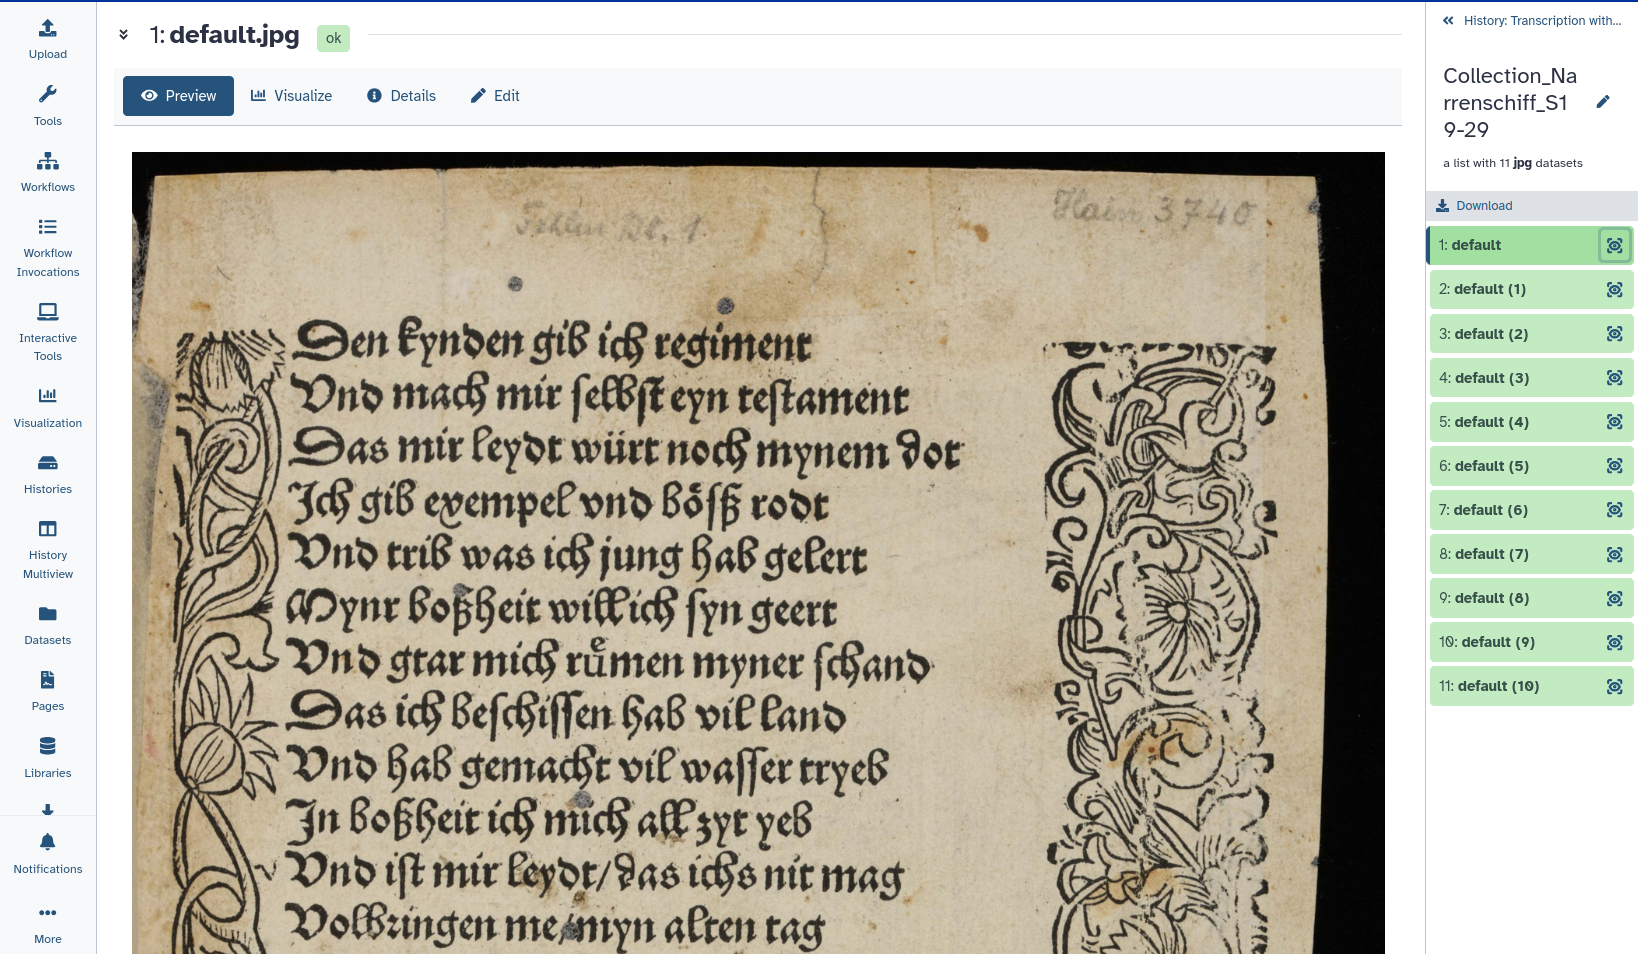 Upload
Tools
Workflows
Workflow
Invocations
Interactive
Tools
Visualization
Histories
History
Multiview
Datasets
Pages
Libraries
Notifications
More
1: default.jpg ok
Preview Visualize Details Edit
Hain 3740
Den kynden gib ich regiment
Vnd mach mir selbst eyn testament
Das mir leydt würt noch mynem dot
Ich gib exempel vnd bößß rodt
Vnd trib was ich jung hab gelert
Mynr boßheit will ich syn geert
Vnd gtar mich ruͤmen myner schand
Das ich beschissen hab vil land
Vnd hab gemacht vil wasser tryeb
In boßheit ich mich all zyt yeb
Vnd ist mir leydt/das ichs nit mag
Volbringen me/myn alten tag
History: Transcription with...
Collection_Na
rrenschiff_S1
9-29
a list with 11 jpg datasets
Download
1: default
2: default (1)
3: default (2)
4: default (3)
5: default (4)
6: default (5)
7: default (6)
8: default (7)
9: default (8)
10: default (9)
11: default (10)